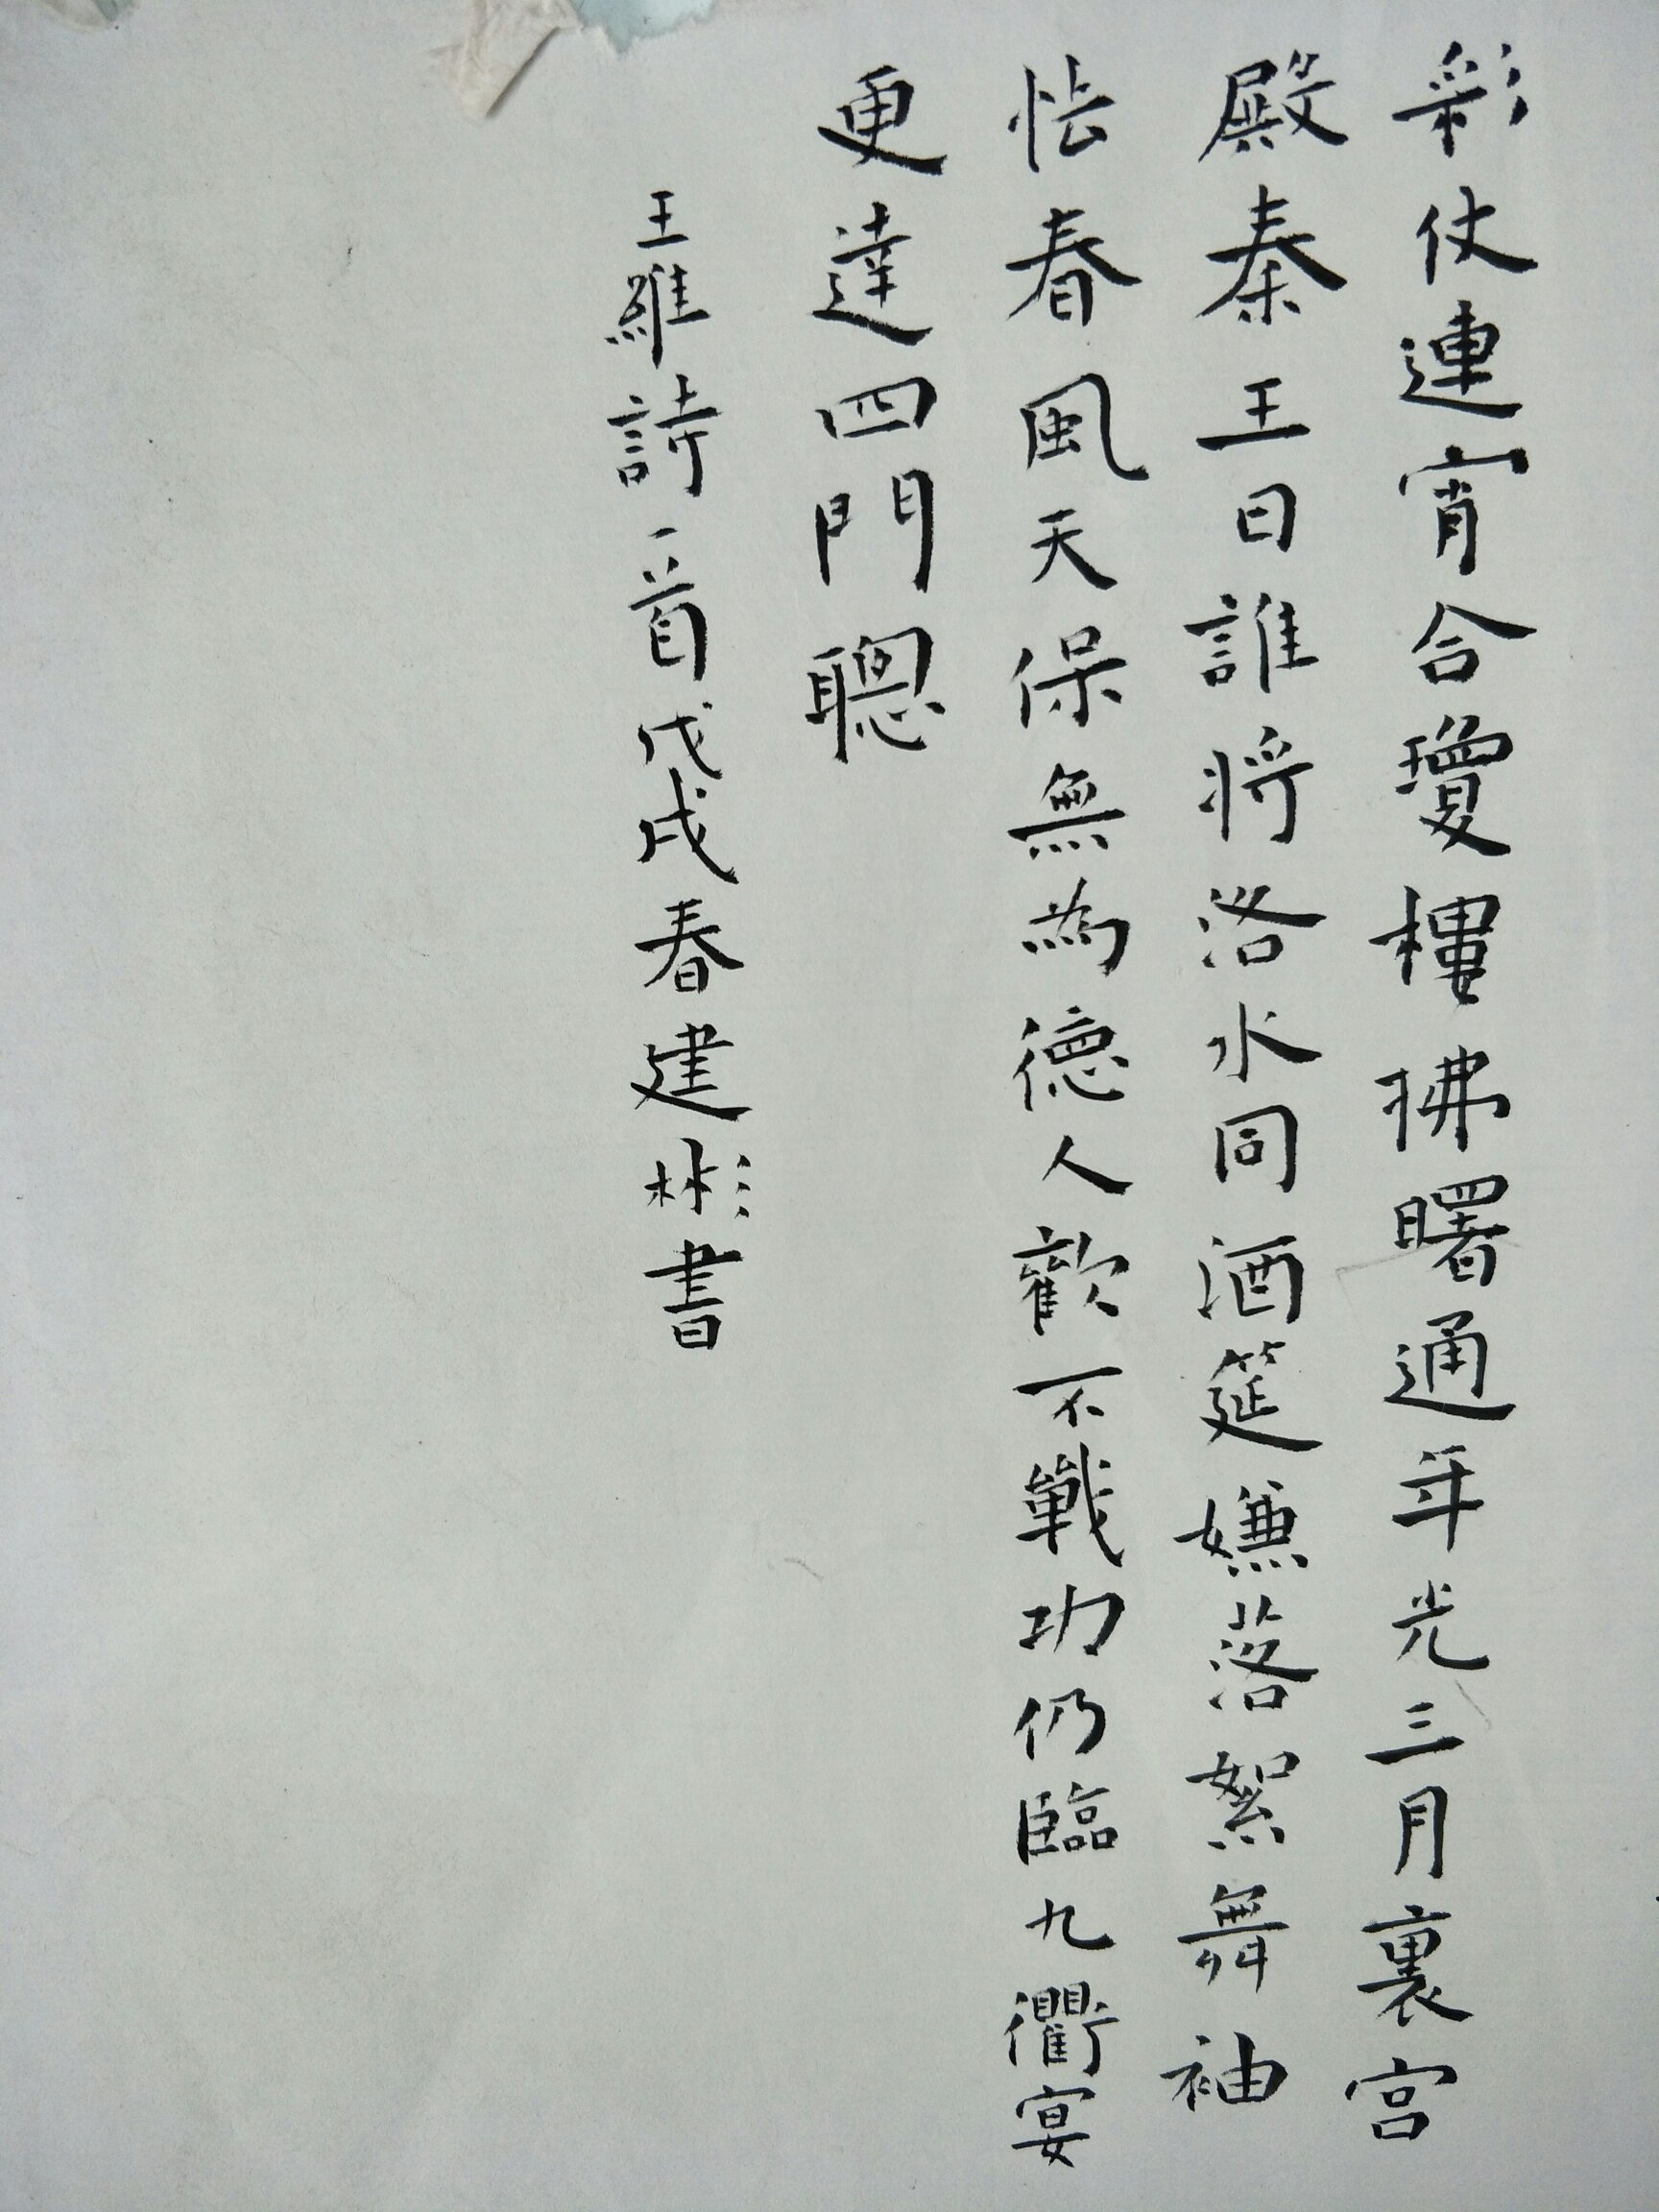 彩仗連宵合瓊樓拂曙通年光三月裏宫
殿秦王日誰將洛水同酒筵嫌落絮舞袖
怯春風天保無為德人歡不戰功仍臨九衢宴
更達四門聰
王維詩一首戊戌春建彬書